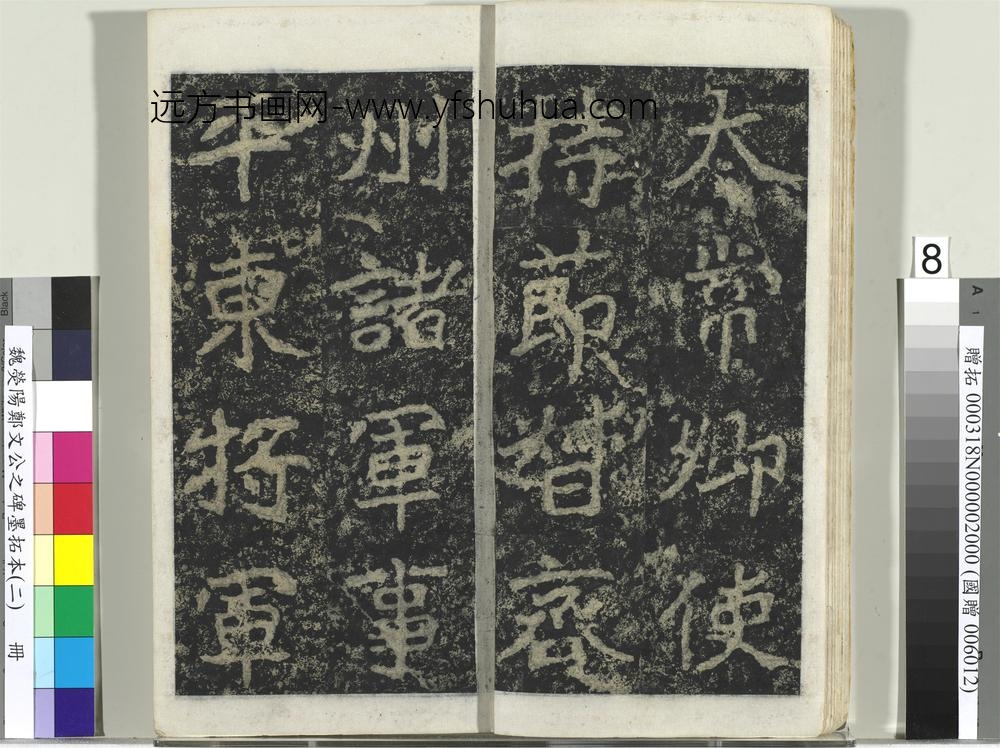 太常卿使
持節督齊
州諸軍事
平東將軍
远方书画网-www.yfshuhua.com
魏滎陽鄭文公之碑墨拓本(二) 冊
Black
8
A
1
贈拓 000318N000002000 (國贈 006012)